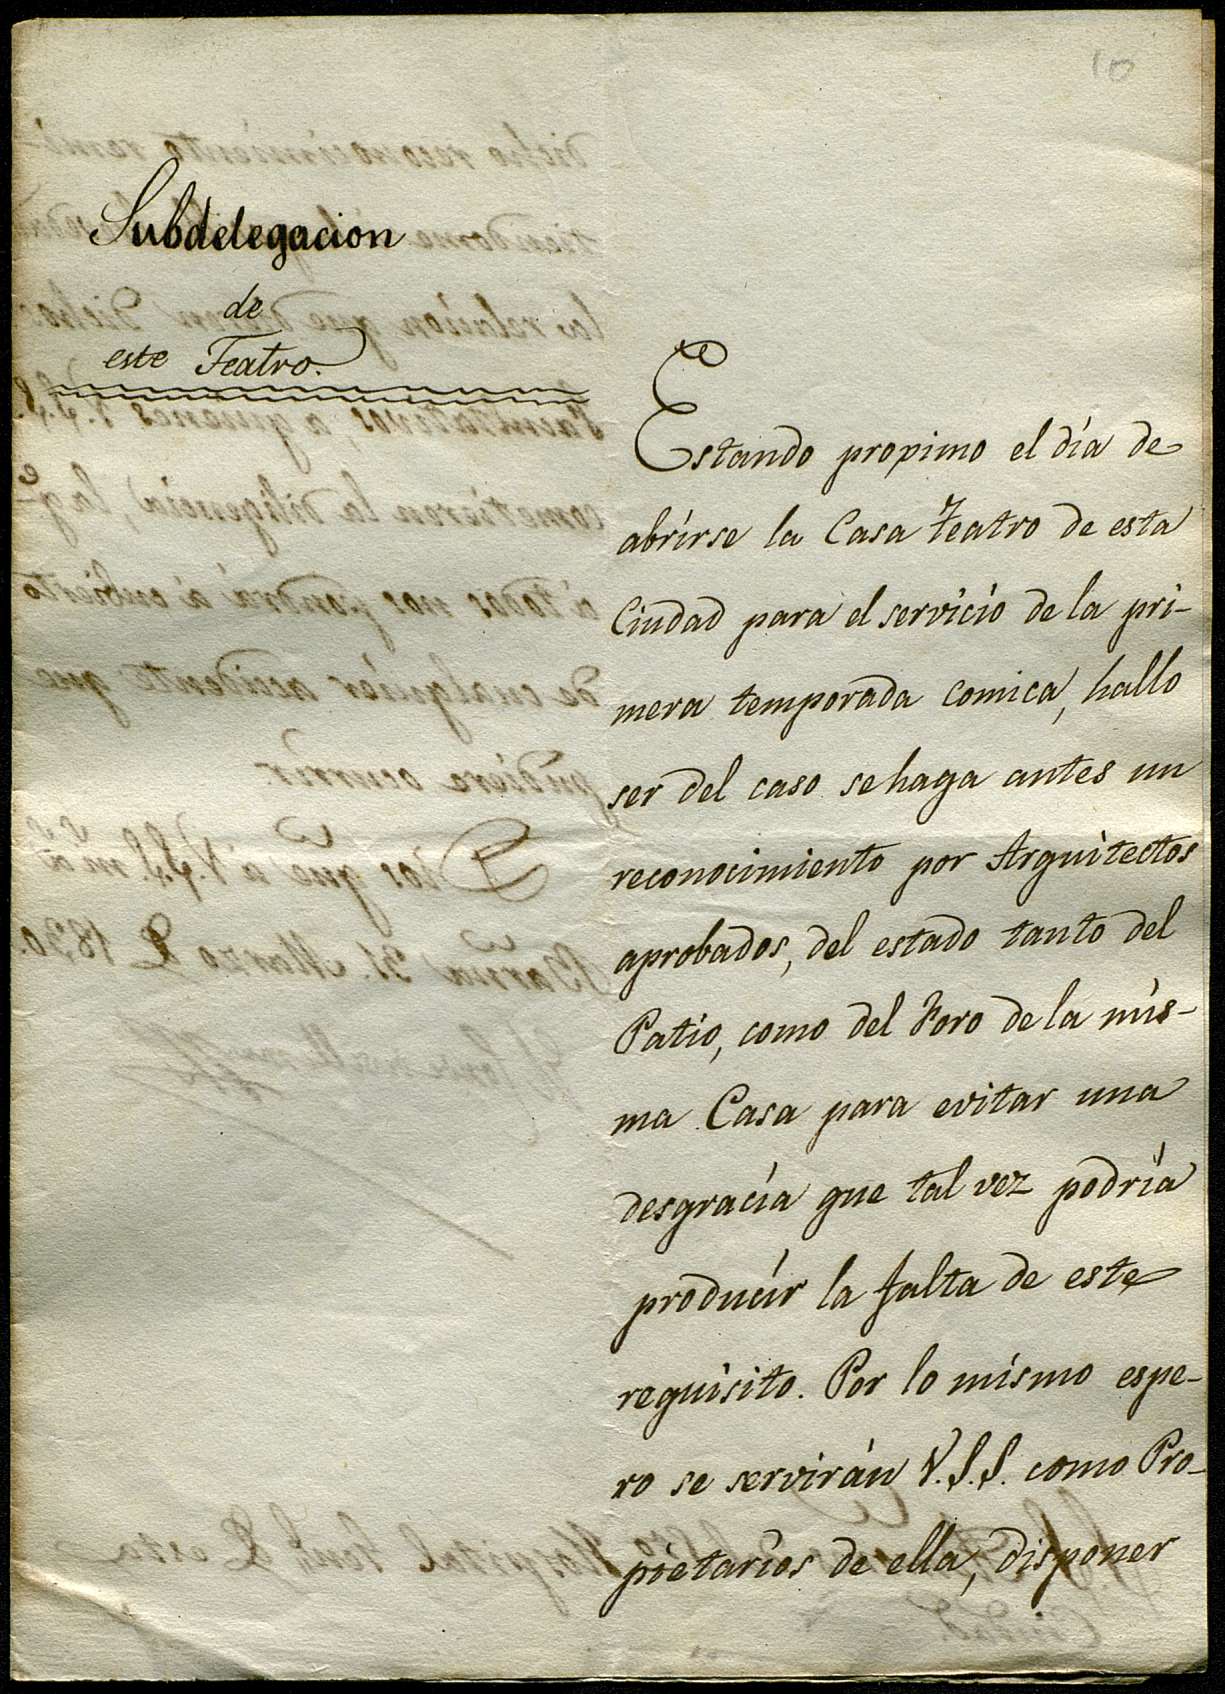 10
Subdelegacion
de
este Teatro.
Estando propimo el día de
abrirse la Casa Teatro de esta
Ciudad para el servicio de la pri-
mera temporada comica, hallo
ser del caso se haga antes un
reconocimiento por Arquitectos
aprobados, del estado tanto del
Patio, como del Foro de la mis-
ma Casa para evitar una
desgracia que tal vez podría
producir la falta de este
requisito. Por lo mismo espe-
ro se servirán V.S.S. como Pro-
pietarios de ella, disponer